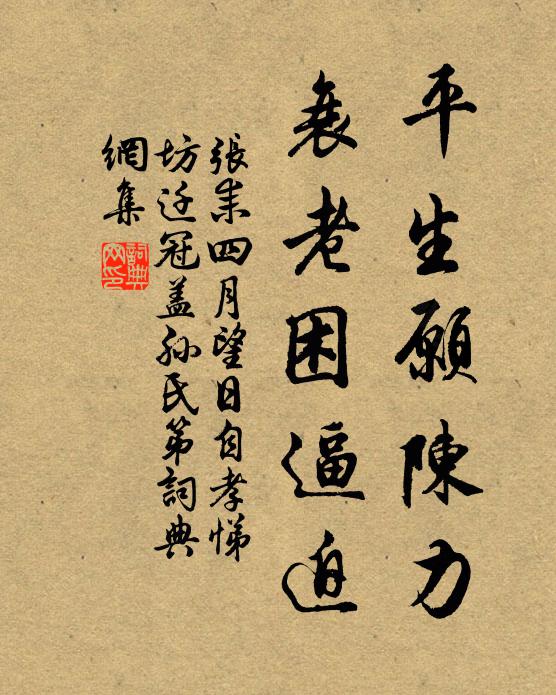 平生願陳力
衰老困逼迫
張耒四月望日自孝悌
坊迁冠蓋孙氏第詞典
網集
詞典網印